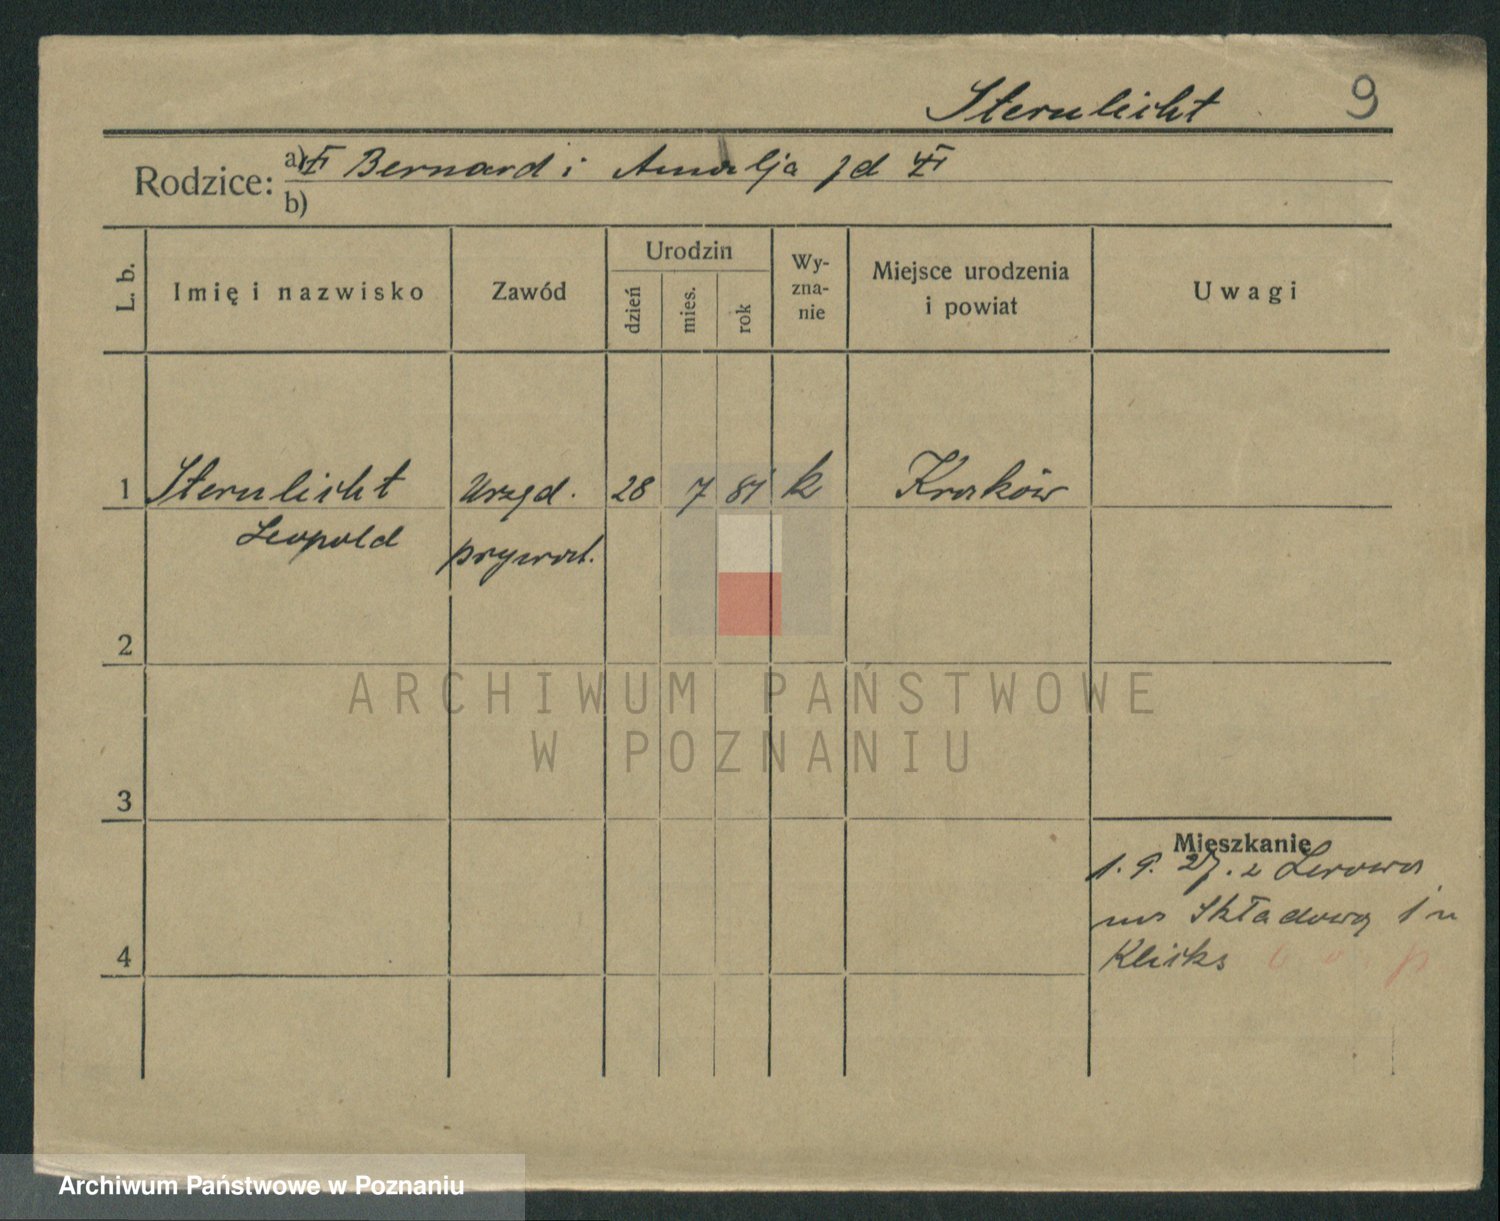 Sternlicht 9
Rodzice: a) Bernard i Amalja
b)
L. b. Imię i nazwisko Zawód Urodzin dzień mies. rok Wy-
zna-
nie Miejsce urodzenia
i powiat Uwagi
1 Sternlicht Urzęd. 28 7 81 k Kraków
Leopold prywat.
2
ARCHIWUM PAŃSTWOWE
W POZNANIU
3
Mieszkanie
1. 9. 27. z
na Składową 1 u
4
Archiwum Państwowe w Poznaniu